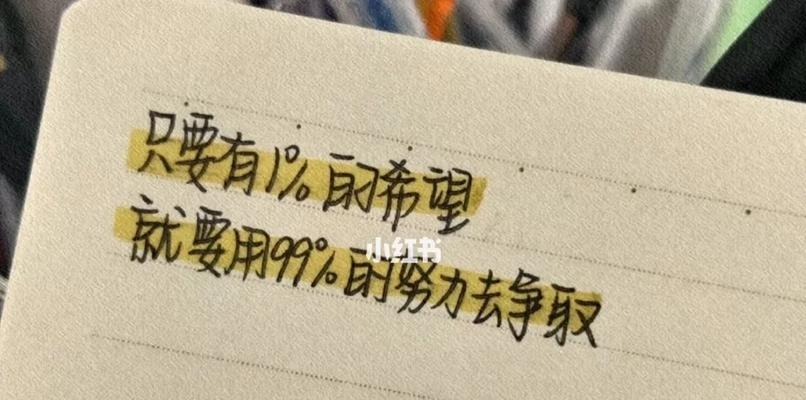 只要有1%的希望
就要用99%的努力去争取
小红书